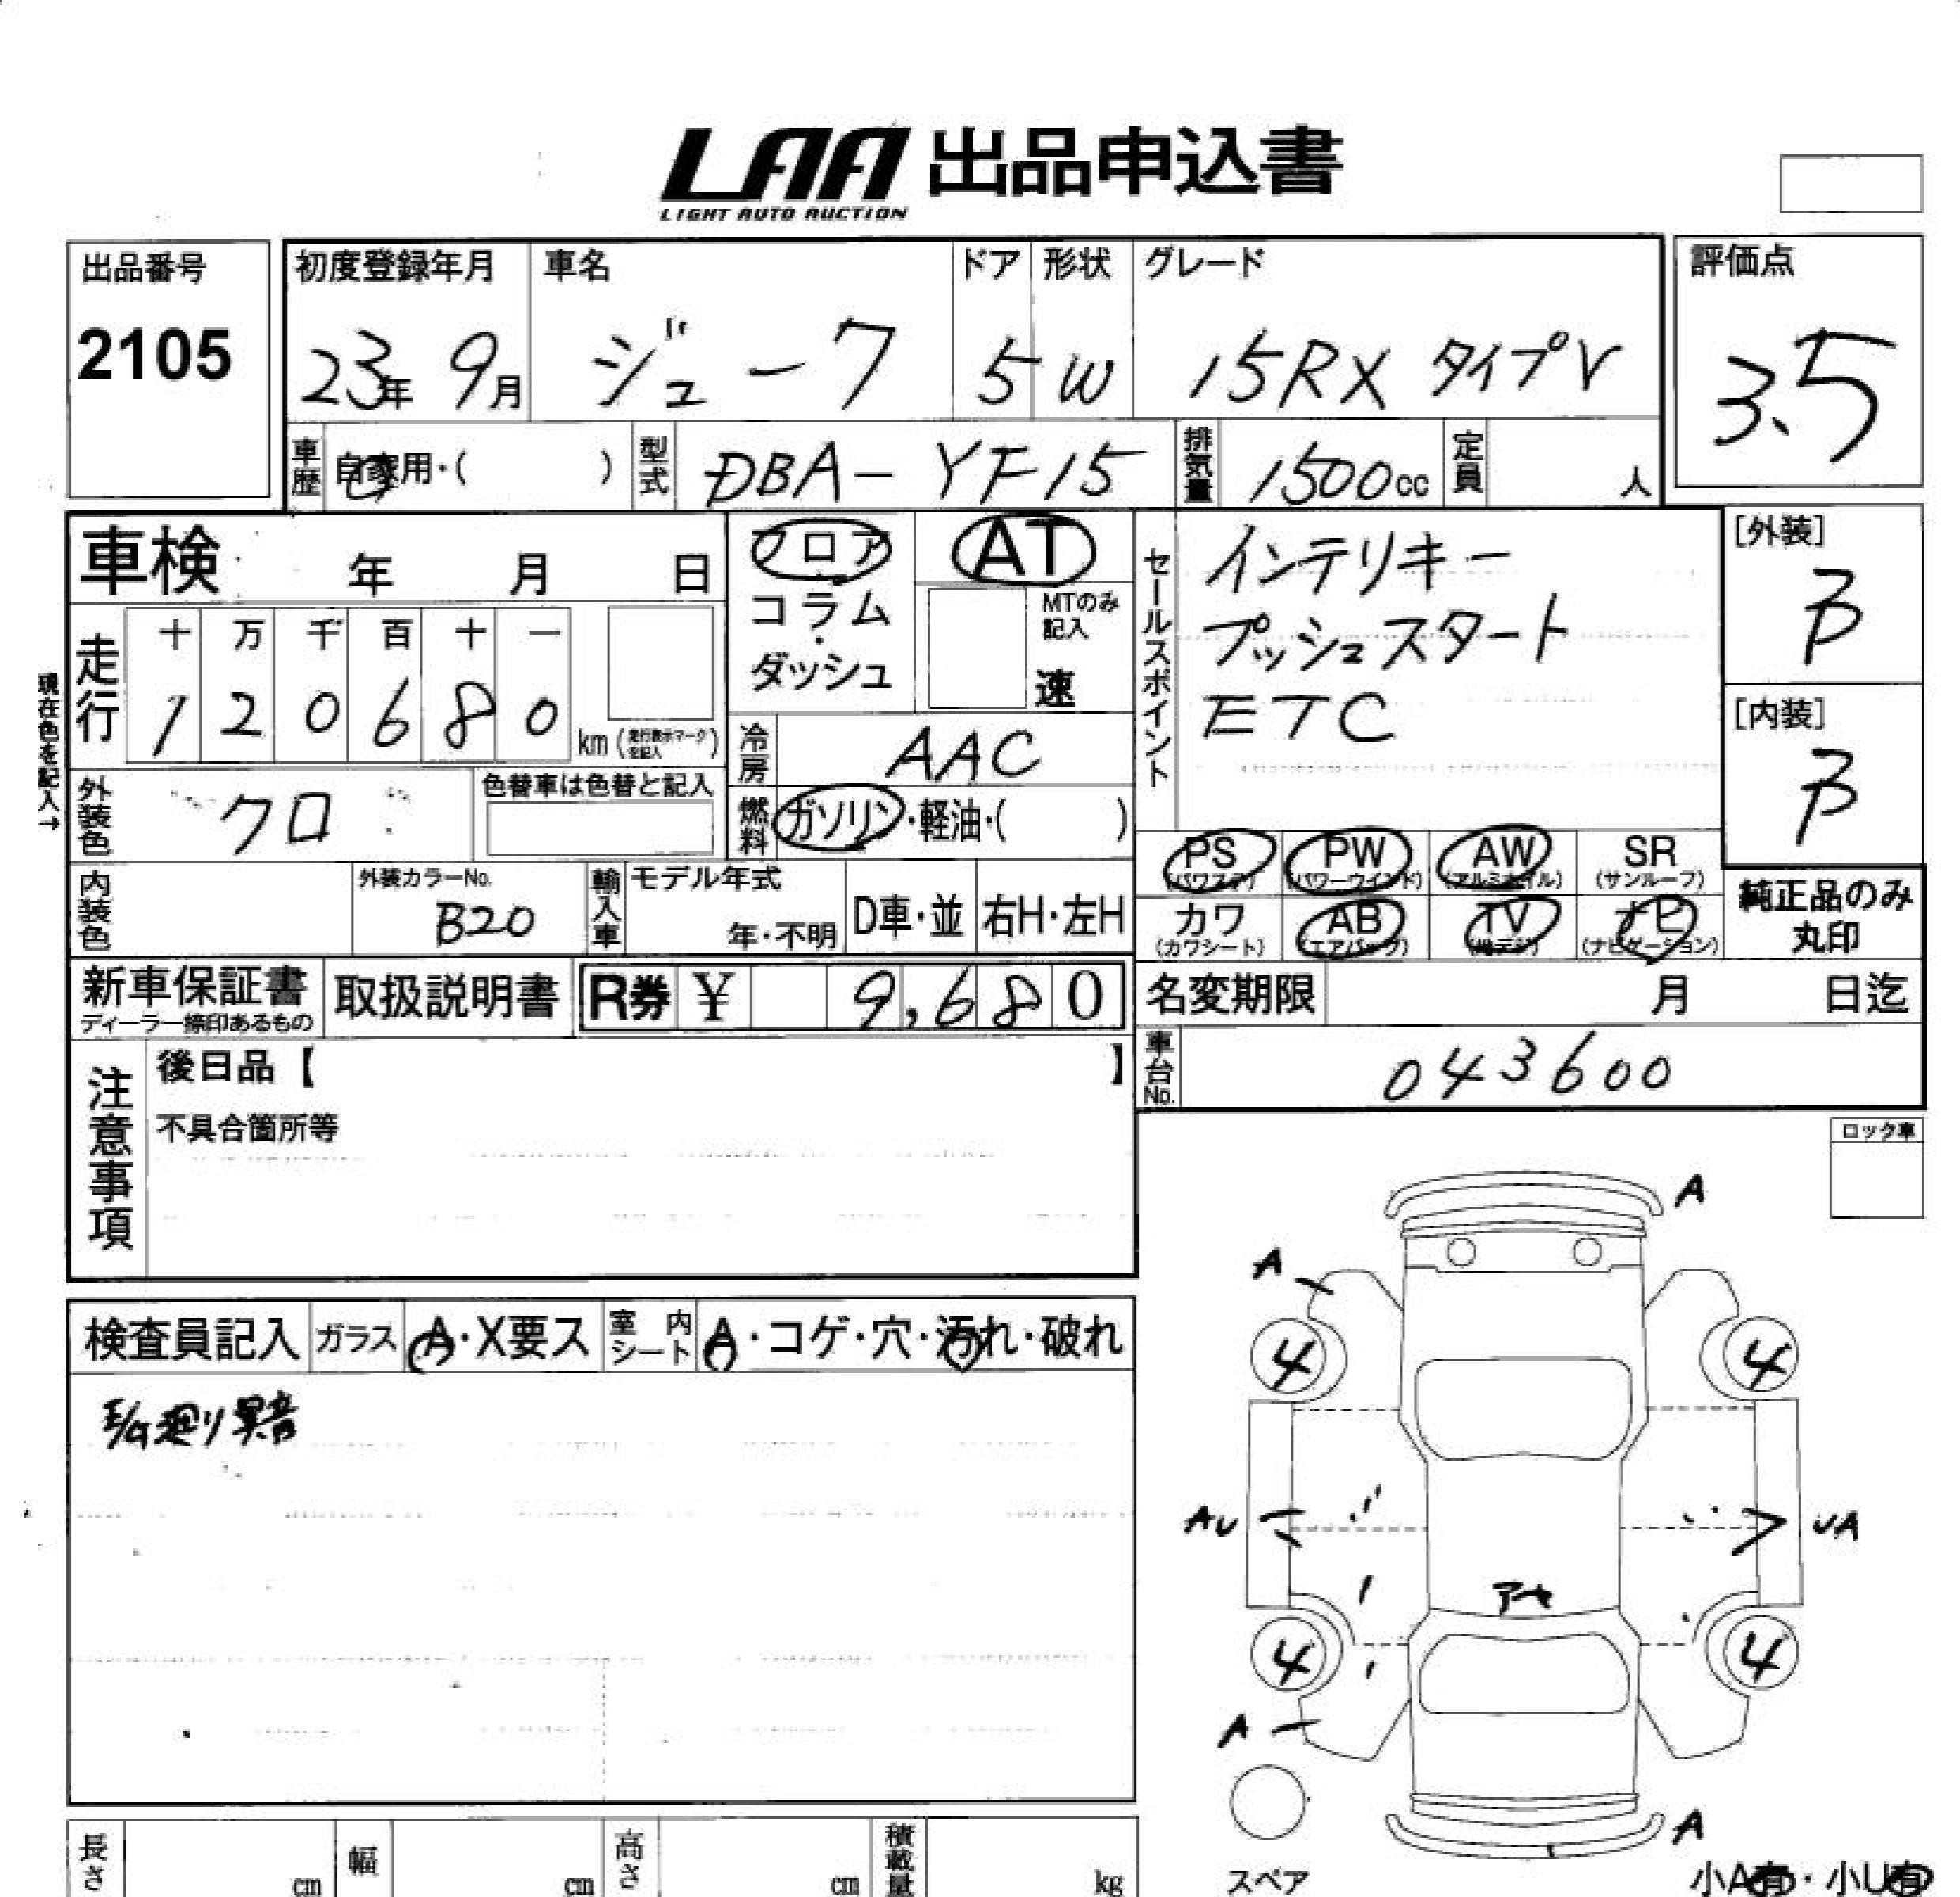 LAA 出品申込書
LIGHT AUTO AUCTION
出品番号
2105
初度登録年月 車名 ドア 形状 グレード
23年 9月 ジューク 5 W 15RX タイプV
評価点
3.5
車歴 自家用・( ) 型式 DBA-YF15 排気量 1500cc 定員 人
車検 年 月 日
フロア・コラム・ダッシュ
AT
MTのみ記入
速
セールスポイント
インテリキー
プッシュスタート
ETC
[外装]
B
[内装]
B
現在色を記入→
走行
十 万 千 百 十 一
1 2 0 6 8 0 km (走行表示マークを記入)
冷房 AAC
外装色 クロ 色替車は色替と記入
燃料 ガソリン・軽油・( )
PS PW AW SR
(パワステ) (パワーウインド) (アルミホイル) (サンルーフ)
カワ AB TV ナビ
(カワシート) (エアバッグ) (地デジ) (ナビゲーション)
純正品のみ
丸印
内装色 外装カラーNo. B20 輸入車 モデル年式 年・不明 D車・並 右H・左H
新車保証書
ディーラー締印あるもの
取扱説明書 R券 ¥ 9,680
名変期限 月 日迄
車台No. 043600
注意事項
後日品【 】
不具合箇所等
ロック車
検査員記入 ガラス A・X要ス 室内シート A・コゲ・穴・汚れ・破れ
廻り異音
A
A
4 4
AU UA
アセ
4 4
A
A
スペア
小A有・小U有
長さ cm 幅 cm 高さ cm 積載量 kg